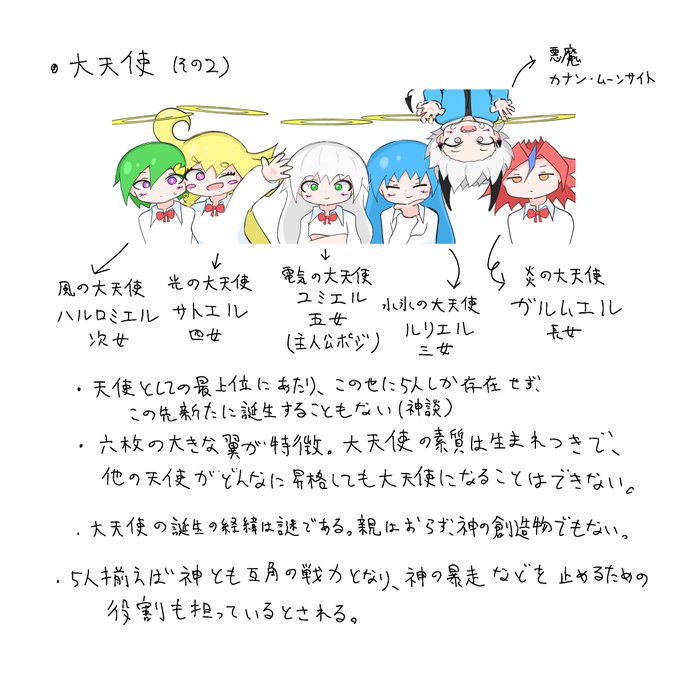 大天使 (その2)
悪魔
カナン・ムーンサイト
風の大天使
ハルロミエル
次女
光の大天使
サトエル
四女
電気の大天使
ユミエル
五女
(主人公ポジ)
水氷の大天使
ルリエル
三女
炎の大天使
ガルムエル
長女
・天使としての最上位にあたり、この世に5人しか存在せず、
この先新たに誕生することもない(神談)
・六枚の大きな翼が特徴。大天使の素質は生まれつきで、
他の天使がどんなに昇格しても大天使になることはできない。
・大天使の誕生の経緯は謎である。親はおらず、神の創造物でもない。
・5人揃えば神とも互角の戦力となり、神の暴走などを止めるための
役割も担っているとされる。